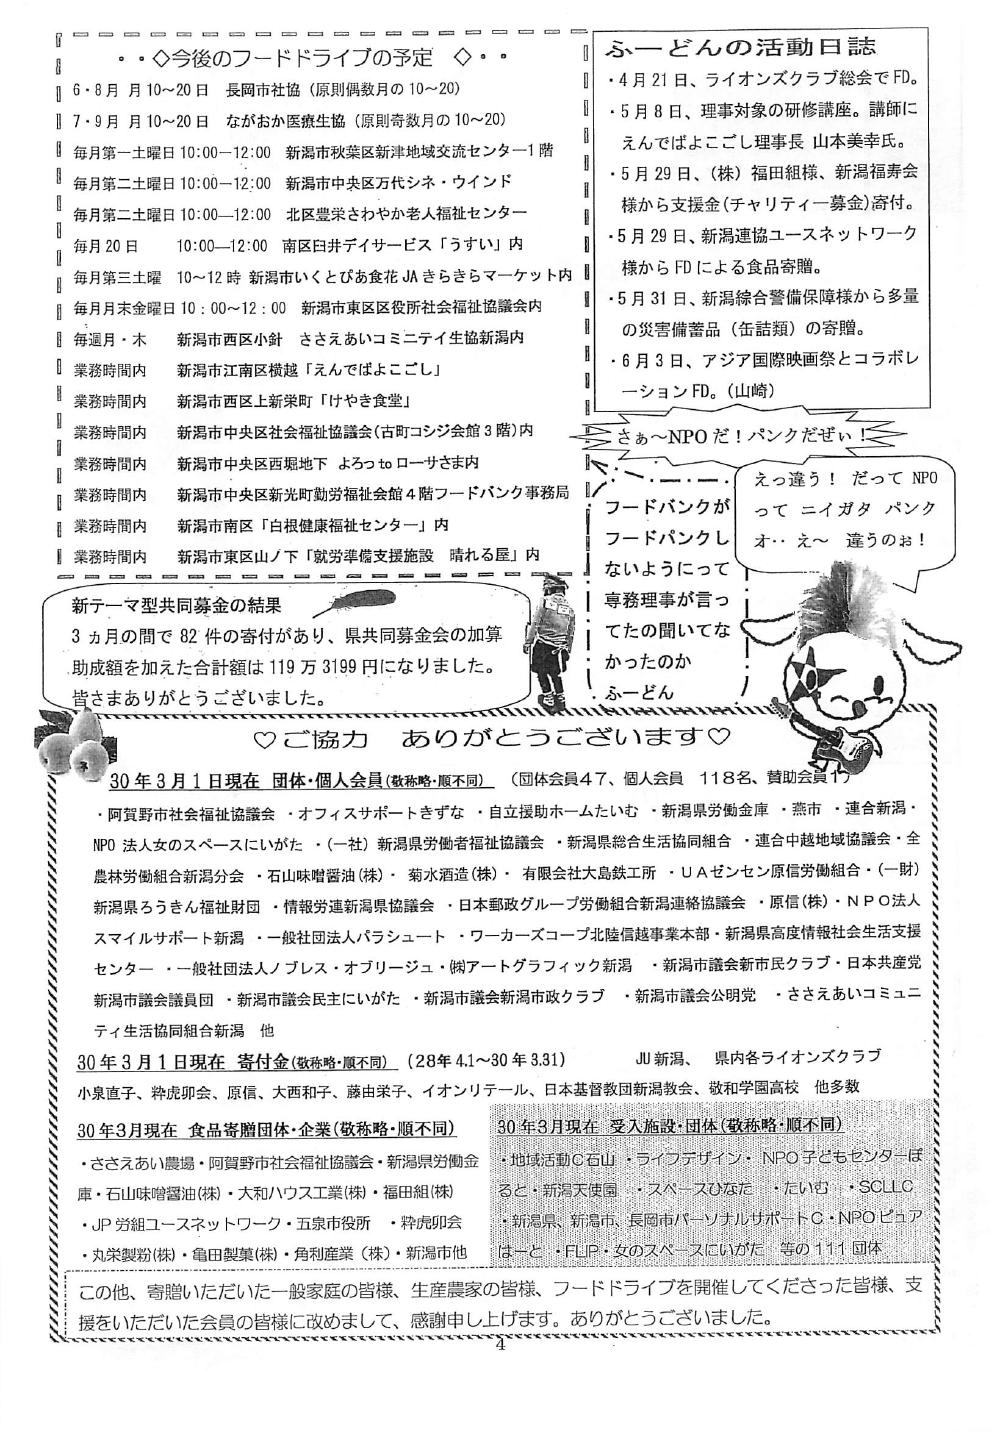 ・・◇今後のフードドライブの予定　◇・・
6・8月 月10～20日　長岡市社協（原則偶数月の10～20）
7・9月 月10～20日　ながおか医療生協（原則奇数月の10～20）
毎月第一土曜日10:00―12:00　新潟市秋葉区新津地域交流センター1階
毎月第二土曜日10:00―12:00　新潟市中央区万代シネ・ウインド
毎月第二土曜日10:00―12:00　北区豊栄さわやか老人福祉センター
毎月20日　10:00―12:00　南区臼井デイサービス「うすい」内
毎月第三土曜　10～12時 新潟市いくとぴあ食花JAきらきらマーケット内
毎月月末金曜日10：00～12：00　新潟市東区区役所社会福祉協議会内
毎週月・木　新潟市西区小針　ささえあいコミニテイ生協新潟内
業務時間内　新潟市江南区横越「えんでばよこごし」
業務時間内　新潟市西区上新栄町「けやき食堂」
業務時間内　新潟市中央区社会福祉協議会(古町コシジ会館3階)内
業務時間内　新潟市中央区西堀地下 よろっtoローサさま内
業務時間内　新潟市中央区新光町勤労福祉会館4階フードバンク事務局
業務時間内　新潟市南区「白根健康福祉センター」内
業務時間内　新潟市東区山ノ下「就労準備支援施設　晴れる屋」内
ふーどんの活動日誌
・4月21日、ライオンズクラブ総会でFD。
・5月8日、理事対象の研修講座。講師に
えんでばよこごし理事長 山本美幸氏。
・5月29日、（株）福田組様、新潟福寿会
様から支援金(チャリティー募金)寄付。
・5月29日、新潟連協ユースネットワーク
様からFDによる食品寄贈。
・5月31日、新潟綜合警備保障様から多量
の災害備蓄品（缶詰類）の寄贈。
・6月3日、アジア国際映画祭とコラボレ
ーションFD。（山崎）
さぁ～NPOだ！パンクだぜぃ！
えっ違う！ だって NPO
って ニイガタ パンク
オ‥ え～ 違うのぉ！
フードバンクが
フードパンクし
ないようにって
専務理事が言っ
てたの聞いてな
かったのか
ふーどん
新テーマ型共同募金の結果
3ヵ月の間で82件の寄付があり、県共同募金会の加算
助成額を加えた合計額は119万3199円になりました。
皆さまありがとうございました。
♡ご協力　ありがとうございます♡
30年3月1日現在 団体・個人会員(敬称略・順不同)　（団体会員47、個人会員　118名、賛助会員1）
・阿賀野市社会福祉協議会　・オフィスサポートきずな　・自立援助ホームたいむ　・新潟県労働金庫　・燕市　・連合新潟・
NPO 法人女のスペースにいがた　・（一社）新潟県労働者福祉協議会　・新潟県総合生活協同組合　・連合中越地域協議会・全
農林労働組合新潟分会　・石山味噌醤油(株)・ 菊水酒造(株)・ 有限会社大島鉄工所　・UAゼンセン原信労働組合・(一財)
新潟県ろうきん福祉財団　・情報労連新潟県協議会　・日本郵政グループ労働組合新潟連絡協議会　・原信(株)・NPO法人
スマイルサポート新潟　・一般社団法人パラシュート　・ワーカーズコープ北陸信越事業本部・新潟県高度情報社会生活支援
センター　・一般社団法人ノブレス・オブリージュ・㈱アートグラフィック新潟　・新潟市議会新市民クラブ・日本共産党
新潟市議会議員団　・新潟市議会民主にいがた　・新潟市議会新潟市政クラブ　・新潟市議会公明党　・ささえあいコミュニ
ティ生活協同組合新潟　他
30年3月1日現在 寄付金(敬称略・順不同)　(28年4.1～30年3.31)　JU新潟、　県内各ライオンズクラブ
小泉直子、粋虎卯会、原信、大西和子、藤由栄子、イオンリテール、日本基督教団新潟教会、敬和学園高校　他多数
30年3月現在 食品寄贈団体・企業(敬称略・順不同)
・ささえあい農場・阿賀野市社会福祉協議会・新潟県労働金
庫・石山味噌醤油(株)・大和ハウス工業(株)・福田組(株)
・JP労組ユースネットワーク・五泉市役所　・粋虎卯会
・丸栄製粉(株)・亀田製菓(株)・角利産業（株）・新潟市他
30年3月現在　受入施設・団体(敬称略・順不同)
・地域活動C石山　・ライフデザイン・ NPO子どもセンターぽ
ると・新潟天使園　・スペースひなた　・たいむ　・SCLLC
・新潟県、新潟市、長岡市パーソナルサポートC・NPOピュア
はーと　・FLIP・女のスペースにいがた　等の111団体
この他、寄贈いただいた一般家庭の皆様、生産農家の皆様、フードドライブを開催してくださった皆様、支
援をいただいた会員の皆様に改めまして、感謝申し上げます。ありがとうございました。
4